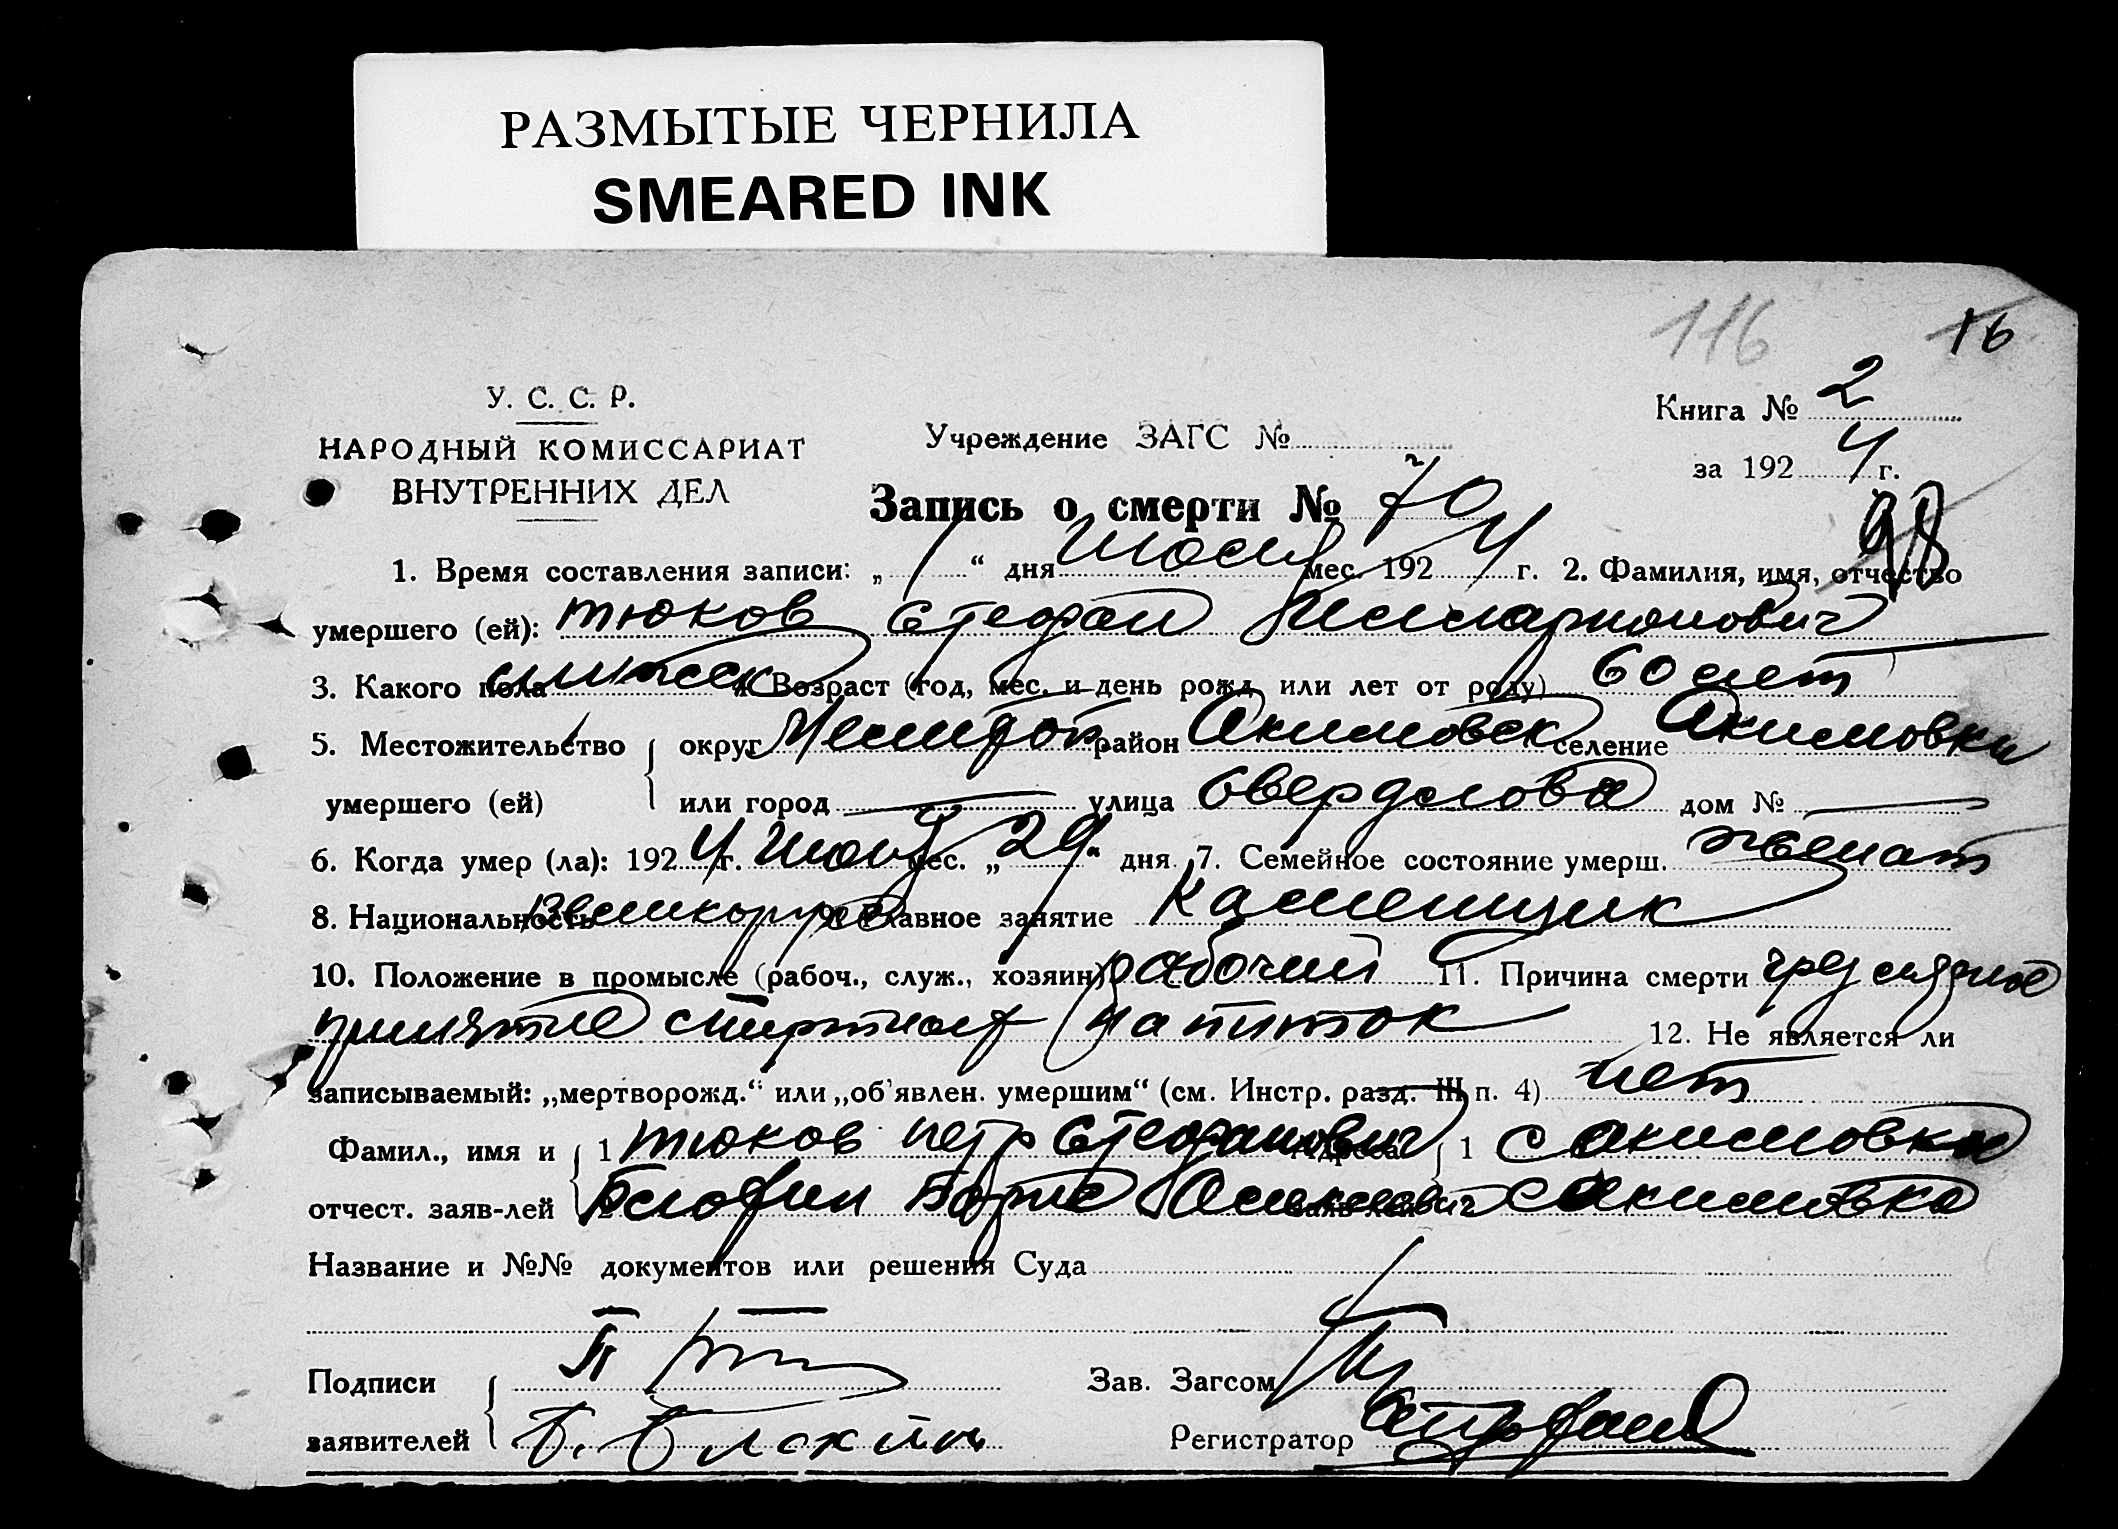 РАЗМЫТЫЕ ЧЕРНИЛА
SMEARED INK
116 16
У. С. С. Р.
НАРОДНЫЙ КОМИССАРИАТ
ВНУТРЕННИХ ДЕЛ
Учреждение ЗАГС №
Книга № 2
за 1924 г.
Запись о смерти № 70
98
1. Время составления записи: „1“ дня Июля мес. 1924 г. 2. Фамилия, имя, отчество
умершего (ей): Тюков Стефан Илларионович
3. Какого пола мужск 4. Возраст (год, мес. и день рожд. или лет от роду) 60 лет
5. Местожительство округ Мелитоп район Акимовск селение Акимовка
умершего (ей) или город улица Свердлова дом №
6. Когда умер (ла): 1924 г. Июня мес. „29“ дня. 7. Семейное состояние умерш. женат
8. Национальность Великорус 9. Главное занятие Каменщик
10. Положение в промысле (рабоч., служ., хозяин) рабочий 11. Причина смерти
принятие спиртных напиток 12. Не является ли
записываемый: „мертворожд.“ или „об'явлен. умершим“ (см. Инстр. разд. III п. 4) нет
Фамил., имя и 1 Тюков Петр Стефанович Адреса 1 с Акимовка
отчест. заяв-лей 2 Борис Алексеевич с Акимовка
Название и №№ документов или решения Суда
Подписи П Зав. Загсом
заявителей Б. Регистратор